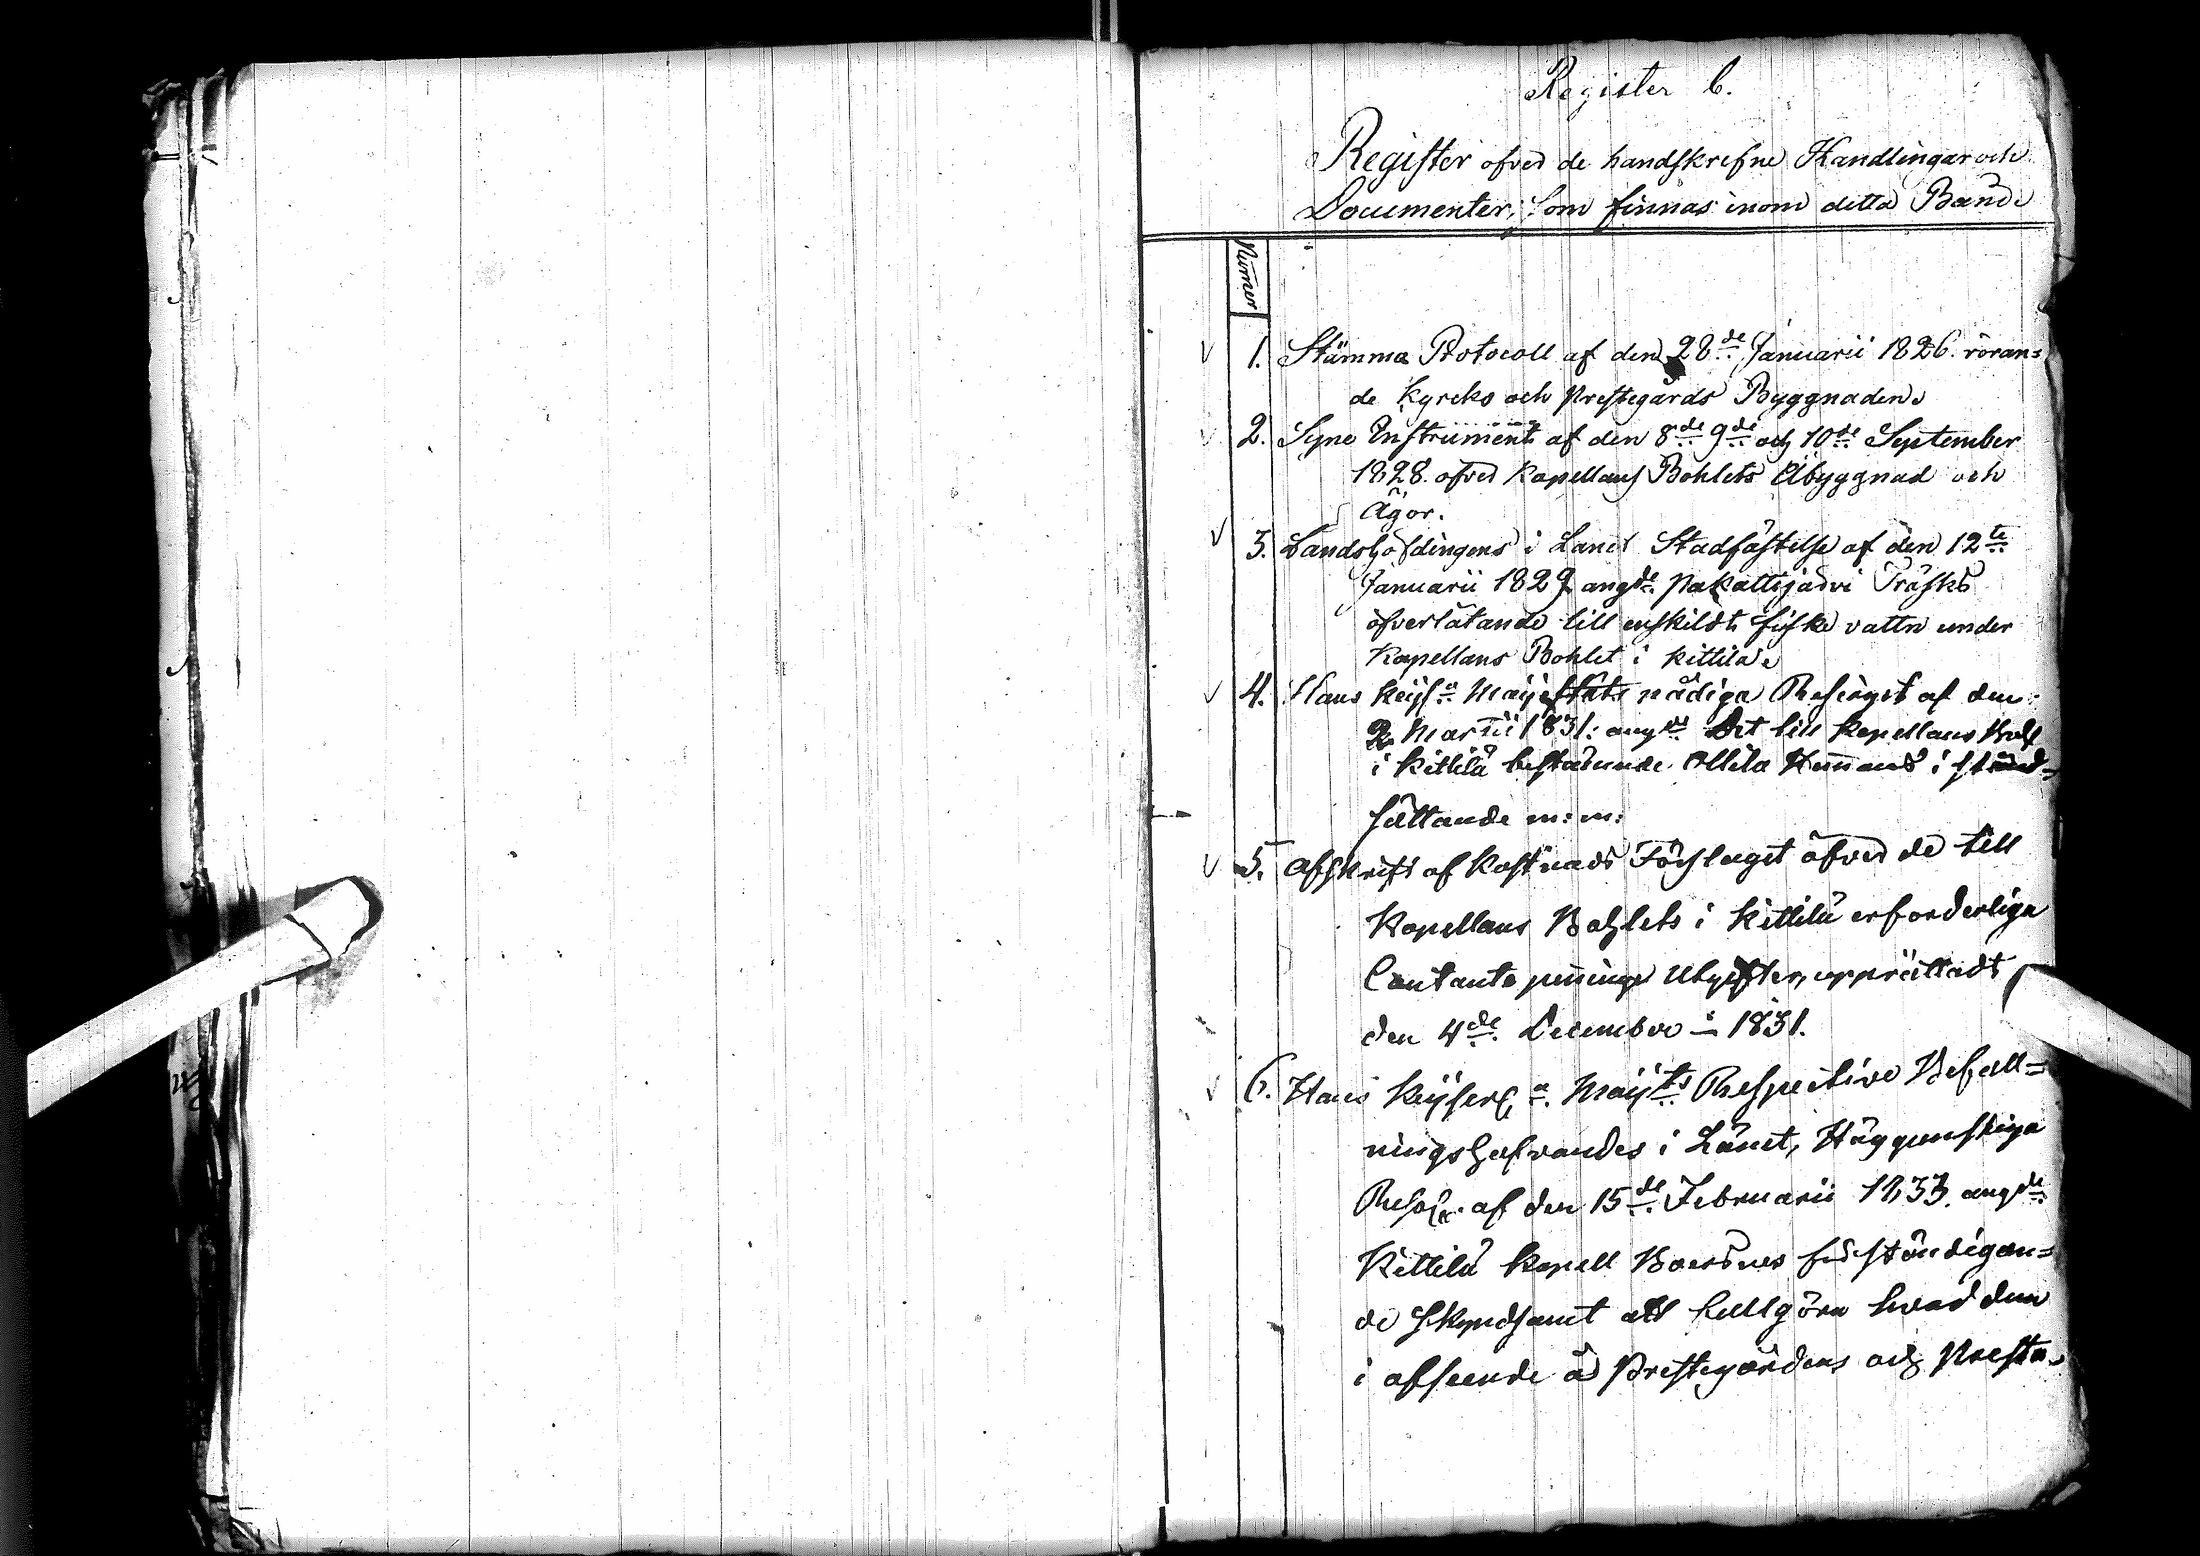 Register C.
Register öfver de handskrifne Handlingar och
Documenter, som finnas inom detta Band.
Numer
1. Stämma Protocoll af den 28de Januarii 1826. röran=
de Kyrko och Prestegårds Byggnaden.
2. Syne Instrument af den 8de 9de och 10de September
1828. öfver Kapellans Bohlets Åbyggnad och
Ägor.
3. Landshöfdingens i Länet Stadfästelse af den 12te
Januarii 1829 angde Pakattijärvi Träsks
öfverlåtande till enskildt fiske vattn under
Kapellans Bohlet i Kittilä.
4. Hans Keijsa Maijestäts nådiga Rescript af den
2 Martii 1831. angde Det till Kapellans
i Kittilä bestående Ollila Hemmans i stånd=
sättande m: m:
5. Afskrift af Kostnads Förslaget öfver de till
Kapellans Bohlets i Kittilä erforderliga
Contanta penninge Utgifter, upprättadt
den 4de December 1831.
6. Hans Keijserla Maijts Respective Befall=
ningshafvandes i Länet, Höggunstiga
Resol. af den 15de Februarii 1833. angde
Kittilä Kapell Boernes fullständigan=
de skyndsamt att fullgöra hvad dem
i afseende å Prestegårdens och Presta=